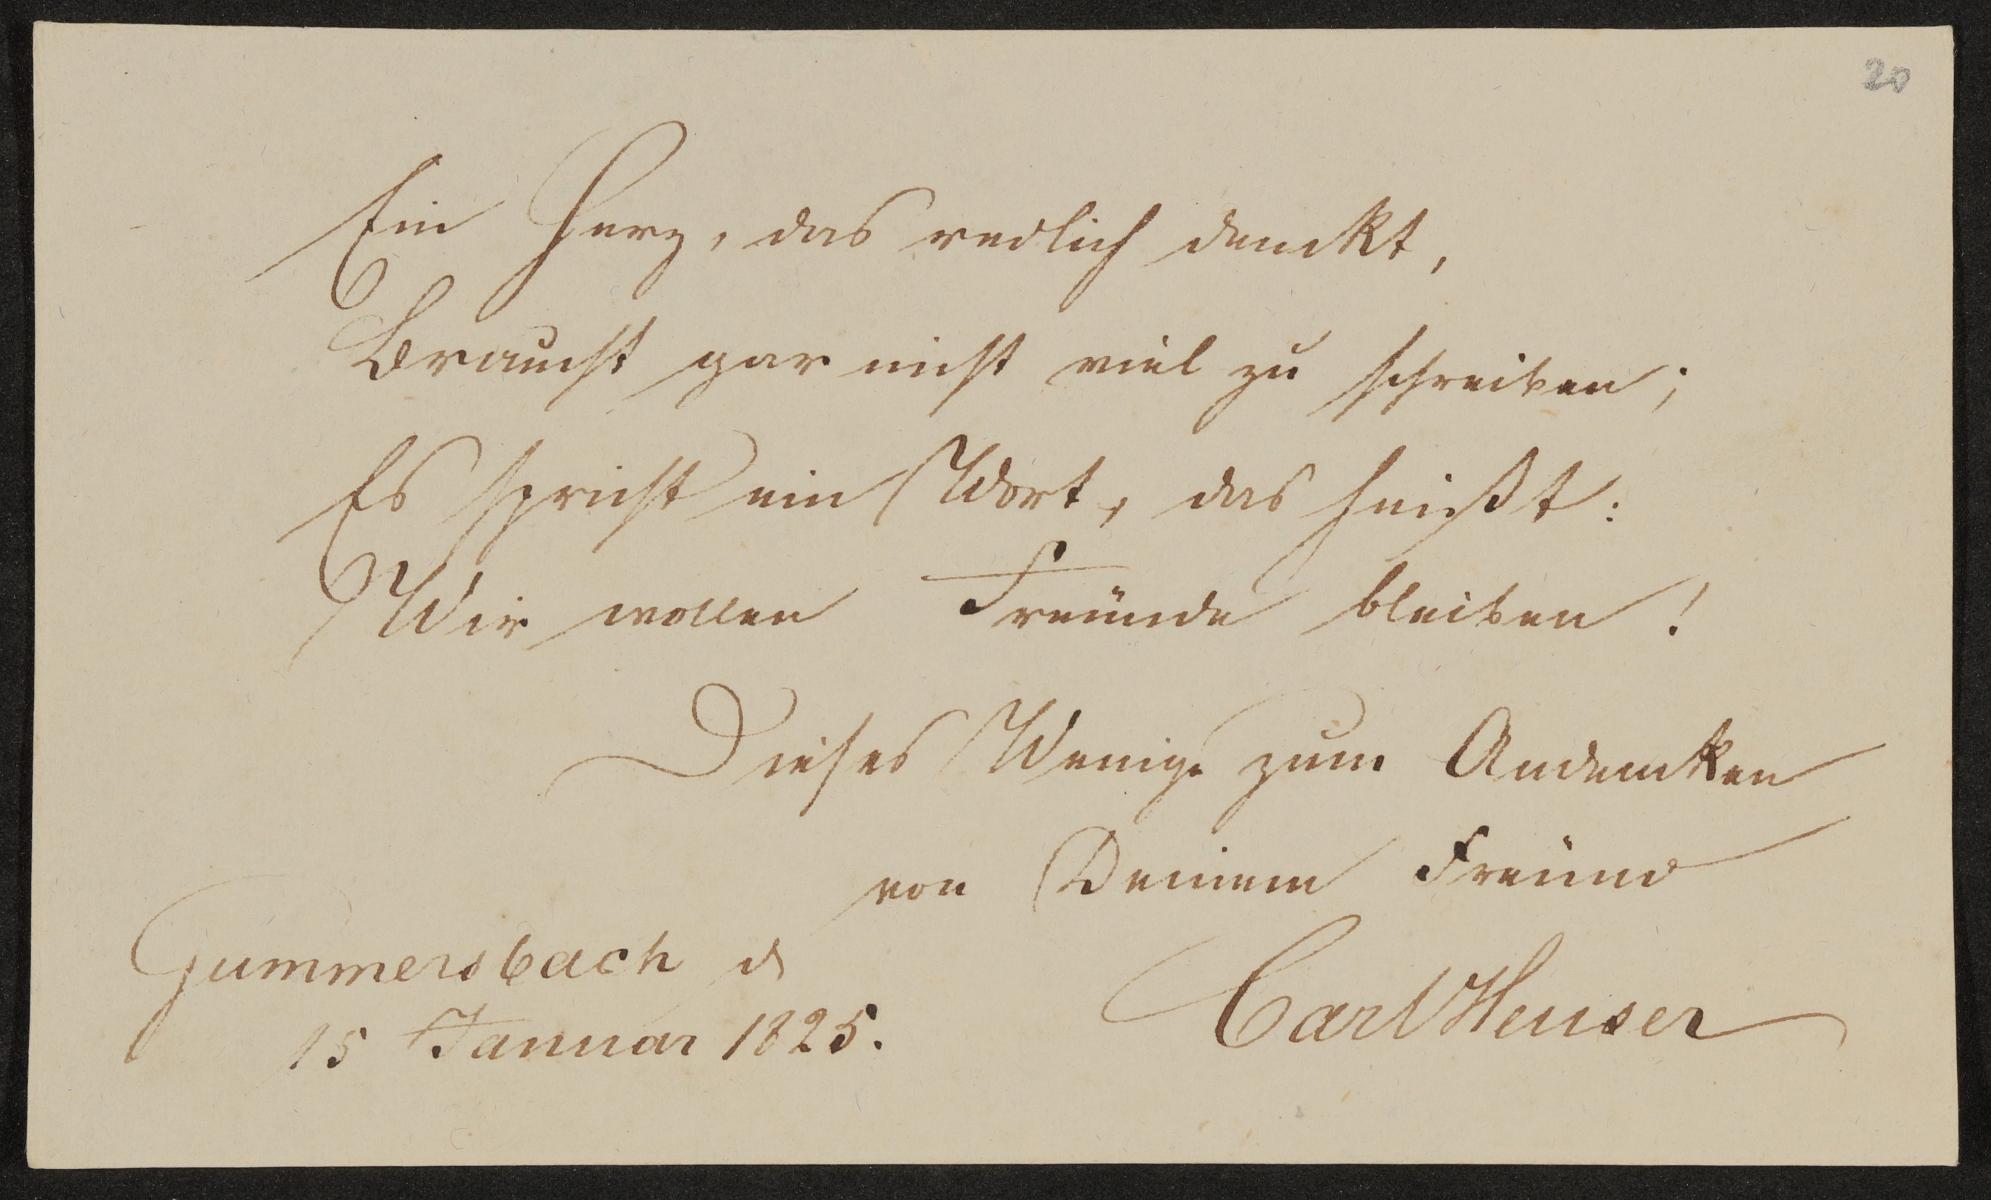 20
Ein Herz, das redlich denckt,
Braucht gar nicht viel zu schreiben;
Es spricht ein Wort, das heißt:
Wir wollen Freunde bleiben!
Dieses Wenige zum Andencken
von Deinem Freund
Gummersbach d
15 Januar 1825.
Carl Heuser